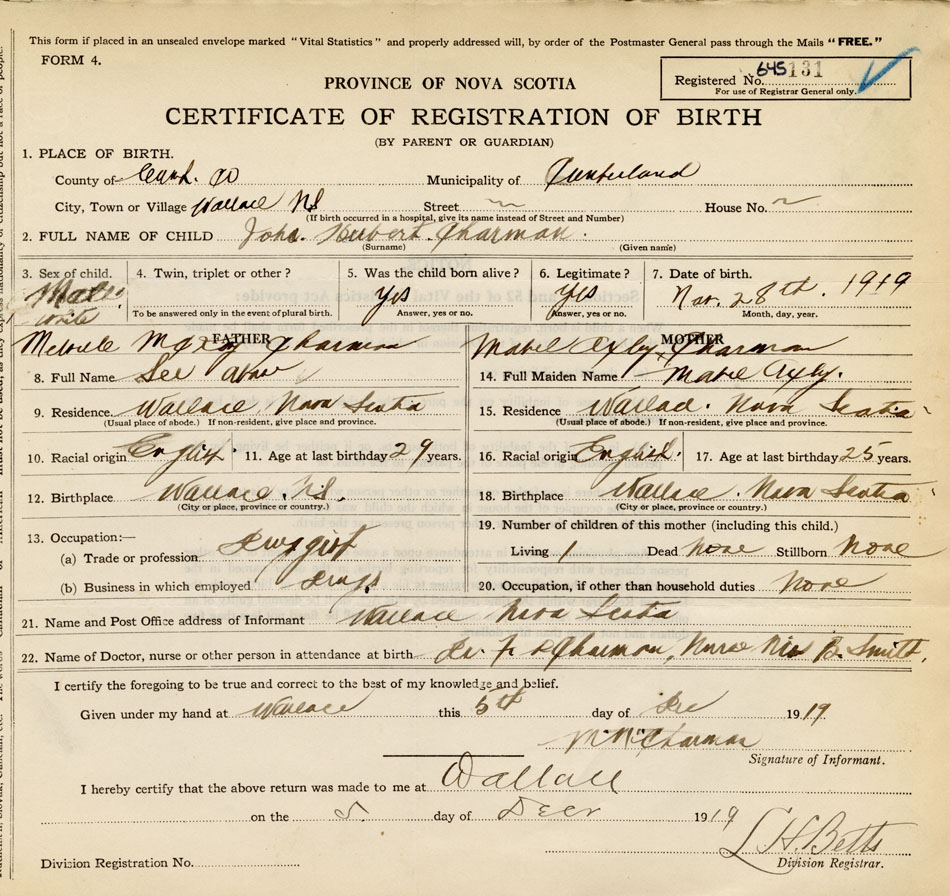 This form if placed in an unsealed envelope marked "Vital Statistics" and properly addressed will, by order of the Postmaster General pass through the Mails "FREE."
FORM 4.
Registered No. 645131
For use of Registrar General only.
PROVINCE OF NOVA SCOTIA
CERTIFICATE OF REGISTRATION OF BIRTH
(BY PARENT OR GUARDIAN)
1. PLACE OF BIRTH.
County of Cumb. Co Municipality of Cumberland
City, Town or Village Wallace NS Street House No.
(If birth occurred in a hospital, give its name instead of Street and Number)
2. FULL NAME OF CHILD John Hubert Charman.
(Surname) (Given name)
3. Sex of child. 4. Twin, triplet or other? 5. Was the child born alive? 6. Legitimate? 7. Date of birth.
Male yes yes Nov. 28th. 1919
white To be answered only in the event of plural birth. Answer, yes or no. Answer, yes or no. Month, day, year.
FATHER MOTHER
Charman Mabel Charman
8. Full Name See above 14. Full Maiden Name Mabel
9. Residence Wallace, Nova Scotia 15. Residence Wallace. Nova Scotia
(Usual place of abode.) If non-resident, give place and province. (Usual place of abode.) If non-resident, give place and province.
10. Racial origin English 11. Age at last birthday 29 years. 16. Racial origin English. 17. Age at last birthday 25 years.
12. Birthplace Wallace N.S. 18. Birthplace Wallace. Nova Scotia
(City or place, province or country.) (City or place, province or country.)
13. Occupation:— 19. Number of children of this mother (including this child.)
(a) Trade or profession Druggist Living 1 Dead None Stillborn None
(b) Business in which employed Drugs 20. Occupation, if other than household duties None
21. Name and Post Office address of Informant Wallace Nova Scotia
22. Name of Doctor, nurse or other person in attendance at birth Dr. F. Charman, Nurse Miss B. Smith.
I certify the foregoing to be true and correct to the best of my knowledge and belief.
Given under my hand at Wallace this 5th day of Dec 1919.
Charman
Signature of Informant.
I hereby certify that the above return was made to me at Wallace
on the 5 day of Decr 1919
L. H. Betts
Division Registration No. Division Registrar.